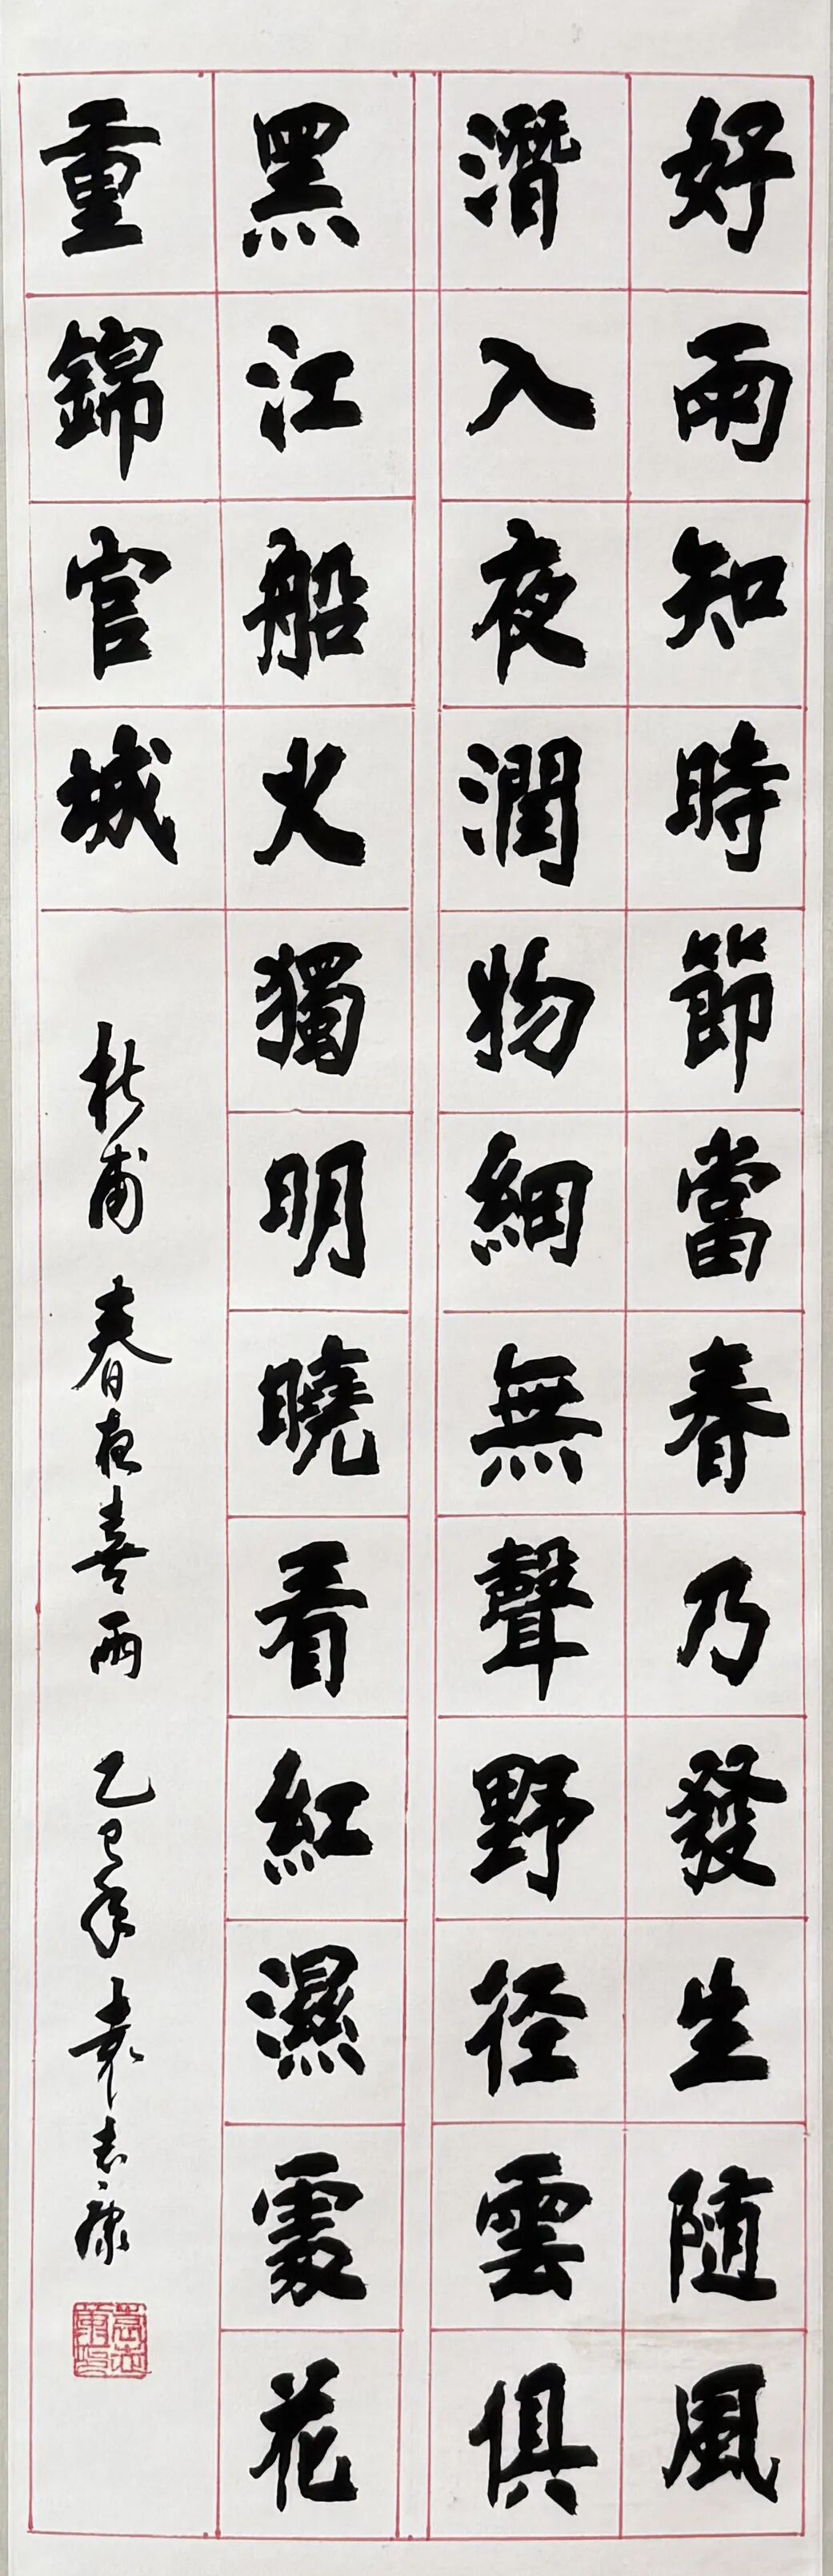 好雨知時節當春乃發生随風
潛入夜潤物細無聲野径雲俱
黑江船火獨明曉看紅濕處花
重錦官城 杜甫 春夜喜雨 乙巳年 袁志康